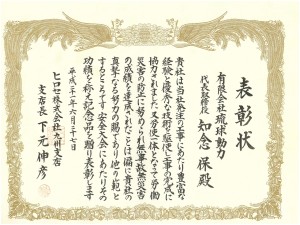 表彰状
有限会社琉球動力
代表取締役 知念 保 殿
貴社は当社発注の工事にあたり豊富な
経験と優秀な技術を駆使し工事の完成に
協力されました 又労使一体となって労働
災害の防止に努められ無事故無災害
の成績を達成されたことは偏に貴社の
真摯なる努力の賜であり他の範と
するところです 安全大会にあたりその
功績を称え記念品を贈り表彰します
平成二十二年六月二十七日
ヒロセ株式会社九州支店
支店長 下元伸彦